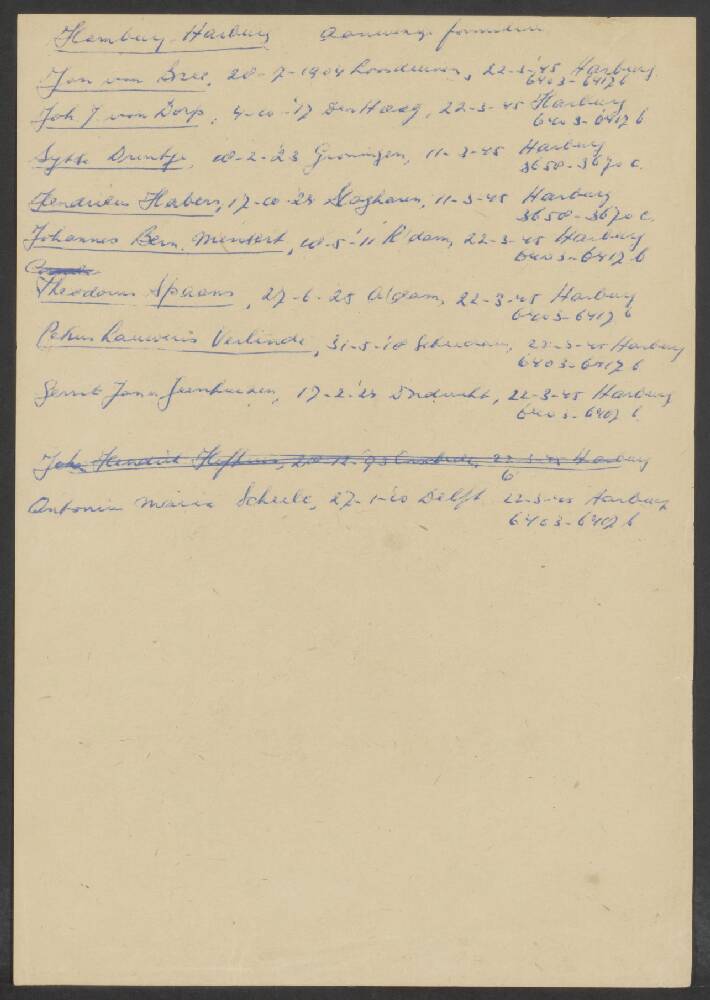 Hamburg-Harburg
Jan van Bree, 20-7-1904 Loosduinen, 22-3-'45 Harburg
6403-6417 b
Joh. J. van Dorp, 4-10-'17 Den Haag, 22-3-45 Harburg
6403-6417 b
Sytse Drentje, 10-2-'23 Groningen, 11-3-45 Harburg
3650-3670 c.
Hendricus Habers, 17-10-'24 Slagharen, 11-3-45 Harburg
3650-3670 c.
Johannes Bern. Mensert, 10-5-'11 R'dam, 22-3-45 Harburg
6403-6417 b
Theodorus Spaans, 27-6-'25 A'dam, 22-3-45 Harburg
6403-6417 b
Petrus Lauweris Verlinde, 31-5-'10 Schiedam, 22-3-45 Harburg
6403-6417 b
Gerrit Jona, 17-2-'24 Dordrecht, 22-3-45 Harburg
6403-6407 b.
Joh. Hendrik 20-12- Enschede, 22-3-45 Harburg
6
Antonia Maria Scheele, 27-1-'20 Delft 22-3-45 Harburg
6403-6417 b